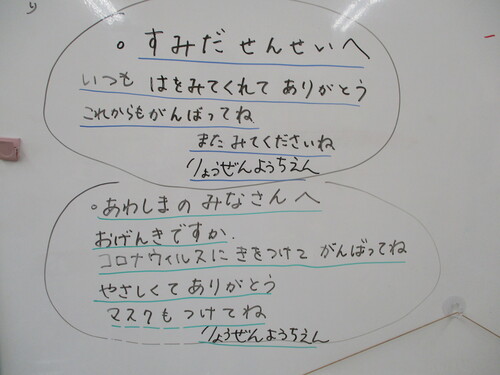 。すみだ せんせいへ
いつも はをみてくれて ありがとう
これからもがんばってね
また みてくださいね
りょうぜんようちえん
。あわしまの みなさんへ
おげんきですか.
コロナウィルスに きをつけて がんばってね
やさしくて ありがとう
マスクもつけてね
りょうぜんようちえん